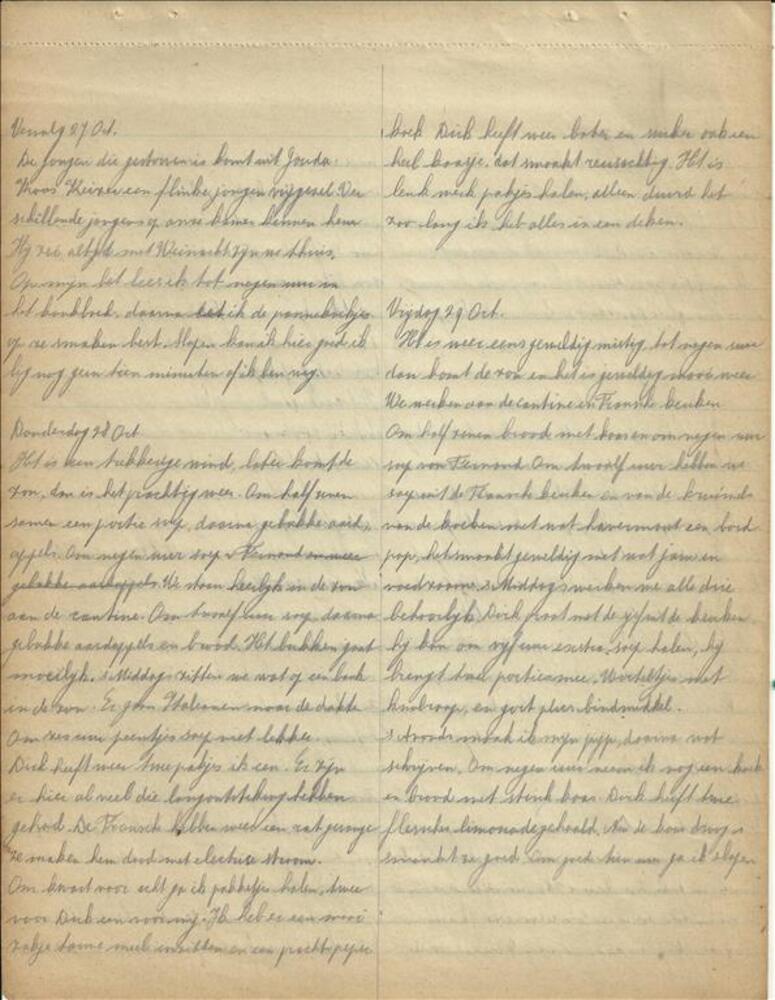 Vervolg 27 Oct.
De jongen die gestorven is komt uit Gouda.
Keizer een flinke jongen vrijgezel. Ver
schillende jongens op onze kamer kennen hem
Hij zei altijd met Weinacht zijn we thuis.
Op mijn bed lees ik tot negen uur in
het kookboek, daarna eet ik de pannekoekjes
op ze smaken best. Slapen kan ik hier goed ik
lig nog geen tien minuten of ik ben weg.
Donderdag 28 Oct
Het is een wind, later komt de
zon, dan is het prachtig weer. Om half zeven
samen een portie soep, daarna gebakke aard
appels. Om negen uur soep v Fernand en weer
gebakke aardappels. We staan heerlijk in de zon
aan de cantine. Om twaalf uur soep daarna
gebakke aardappels en brood. Het bukken gaat
moeilijk. s Middags zitten we wat op een bank
in de zon. Er gaan Italianen naar de
Om zes uur peentjes soep niet lekker.
Dick heeft weer twee pakjes ik een. Er zijn
er hier al veel die longontsteking hebben
gehad. De Fransch hebben weer een rat gevange
ze maken hem dood met electrise stroom.
Om kwart voor acht ga ik pakketje halen, twee
voor Dick een voor mij. Ik heb er een mooi
zakje tarwe meel in zitten en een pracht peper
koek Dick heeft weer boter en suiker ook een
heel kaasje. dat smaakt reusachtig. Het is
leuk werk pakjes halen, alleen duurd het
zoo lang ik het alles in een deken.
Vrijdag 29 Oct.
Het is weer eens geweldig mistig, tot negen uur
dan komt de zon en het is geweldig mooi weer
We werken aan de cantine en Fransch keuken
Om half zeven brood met kaas en om negen uur
soep van Fernand. Om twaalf uur hebben we
soep uit de Fransche keuken en van de
van de koeken met wat havermout een bord
pap, het smaakt geweldig met wat jam en
s Middags werken we alle drie
behoorlijk Dick praat met de uit de keuken
hij kan om vijf uur extra soep halen, hij
brengt twee porties mee. Worteltjes met
knolraap, en gort plus bindmiddel.
s Avonds maak ik mijn pijp, daarna wat
schrijven. Om negen uur neem ik nog een koek
en brood met stuk kaas. Dick heeft twee
flesschen limonade gehaald. Nu de kaas droog is
smaakt ze goed. Om goed tien uur ga ik slapen